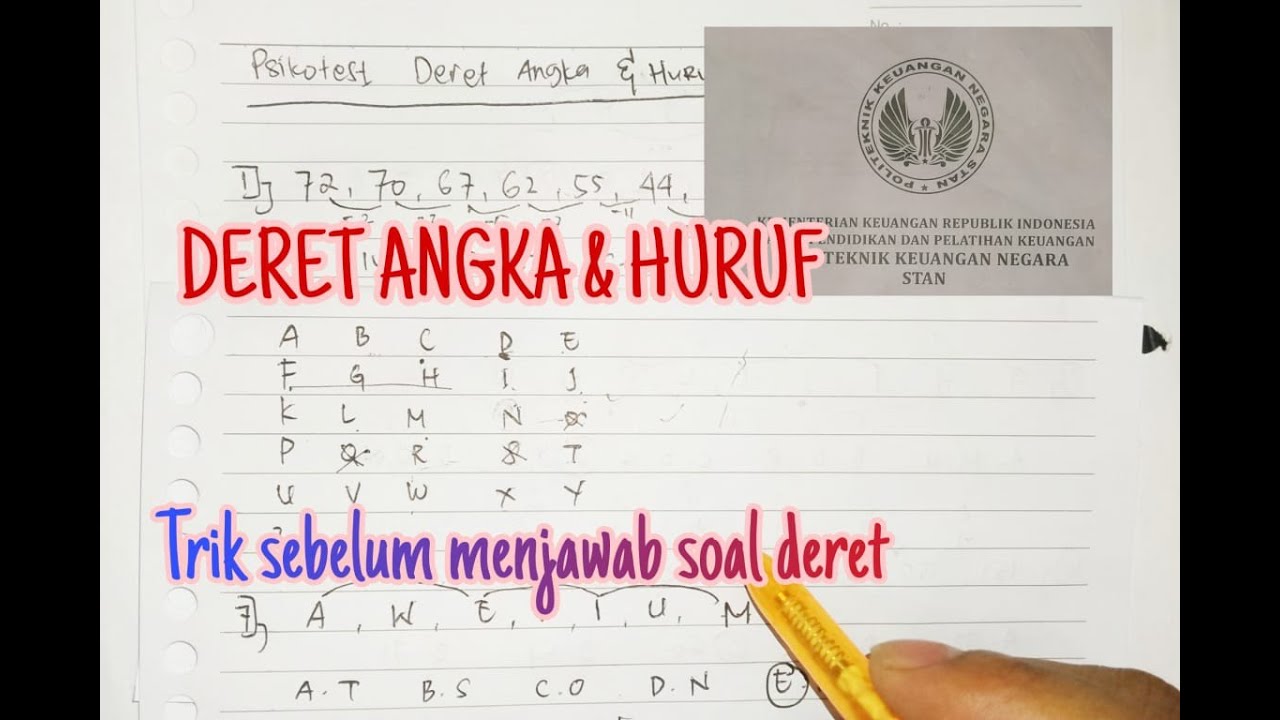 No.:
Psikotest Deret Angka & Huru
1] 72, 70, 67, 62, 55, 44,
-11
POLITEKNIK KEUANGAN NEGARA STAN
KEMENTERIAN KEUANGAN REPUBLIK INDONESIA
PENDIDIKAN DAN PELATIHAN KEUANGAN
TEKNIK KEUANGAN NEGARA
STAN
DERET ANGKA & HURUF
A B C D E
F G H I J
K L M N O
P Q R S T
U V W X Y
Trik sebelum menjawab soal deret
7] A, W, E, , I, U, M
A. T B. S C. O D. N E.